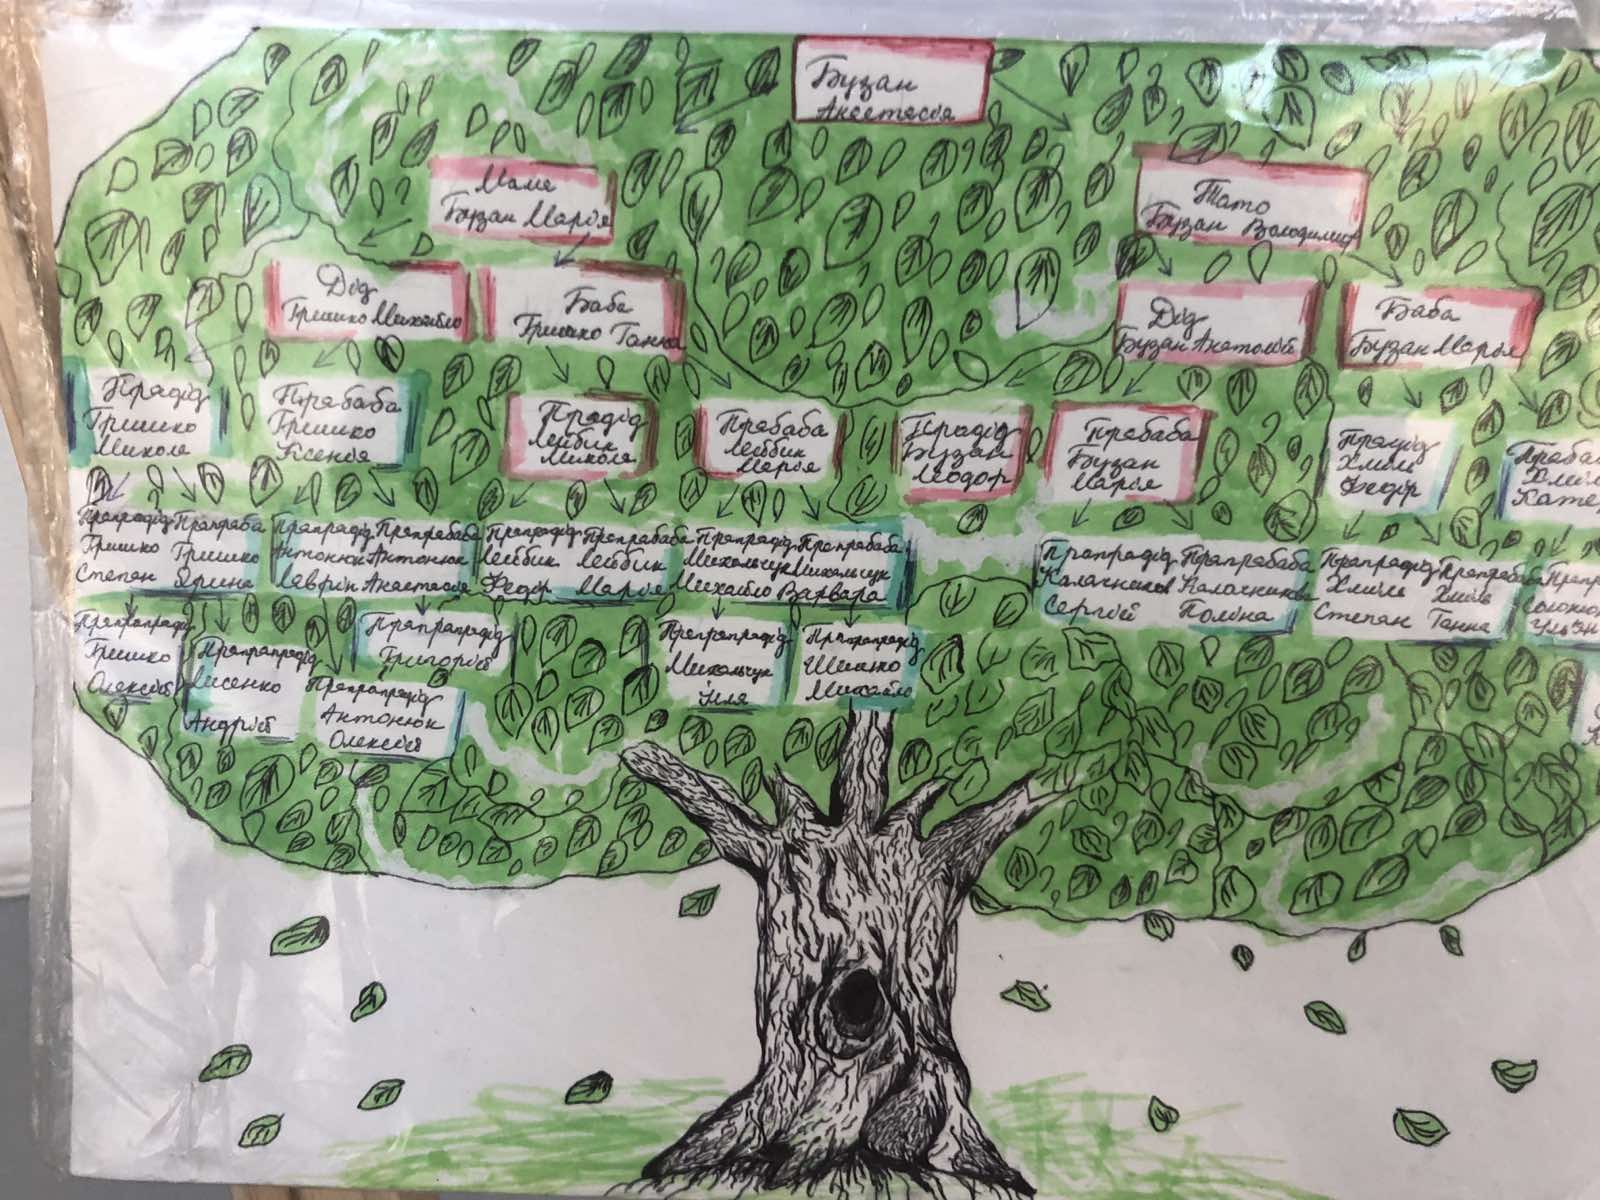 Бузан
Анастасія
Мама
Бузан Марія
Тато
Бузан Володимир
Дід
Гришко Михайло
Баба
Гришко Ганна
Дід
Бузан Анатолій
Баба
Бузан Марія
Прадід
Гришко
Микола
Прабаба
Гришко
Ксенія
Прадід
Лейбик
Микола
Прабаба
Лейбик
Марія
Прадід
Бузан
Теодор
Прабаба
Бузан
Марія
Прадід
Хміль
Федір
Прапрадід
Гришко
Степан
Прапраба
Гришко
Ярина
Прапрадід
Антонюк
Лаврін
Прапрабаба
Антонюк
Анастасія
Прапрадід
Лейбик
Федір
Прапрабаба
Лейбик
Марія
Прапрадід
Михальчук
Михайло
Прапрабаба
Михальчук
Варвара
Прапрадід
Калачников
Сергій
Прапрабаба
Полина
Прапрадід
Хміль
Степан
Прапрабаба
Хміль
Ганна
Прапрапрадід
Гришко
Олексій
Прапрапрадід
Лисенко
Андрій
Прапрапрадід
Григорій
Прапрапрадід
Антонюк
Олексій
Прапрапрадід
Михальчук
Ілля
Прапрапрадід
Шишко
Михайло